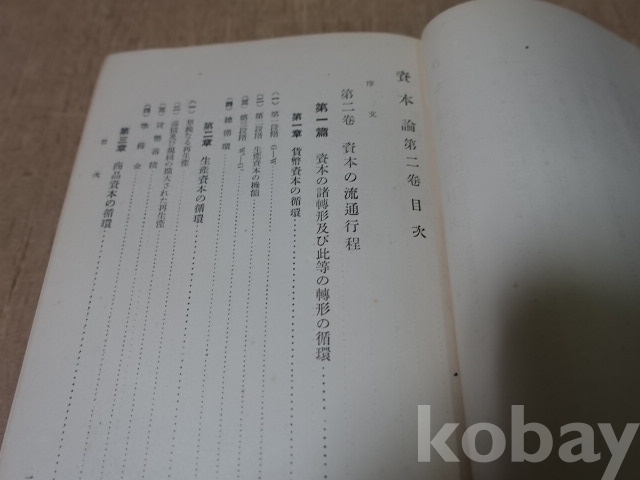 資本論第二卷目次
序文
第二卷 資本の流通行程
第一篇 資本の諸轉形及び此等の轉形の循環
第一章 貨幣資本の循環
(一) 第一段階 G—W
(二) 第二段階 生産資本の機能
(三) 第三段階 W'—G'
(四) 總循環
第二章 生産資本の循環
(一) 單純なる再生産
(二) 蓄積及び規模の擴大された再生産
(三) 貨幣蓄積
(四) 準備金
第三章 商品資本の循環
目次
一
kobay